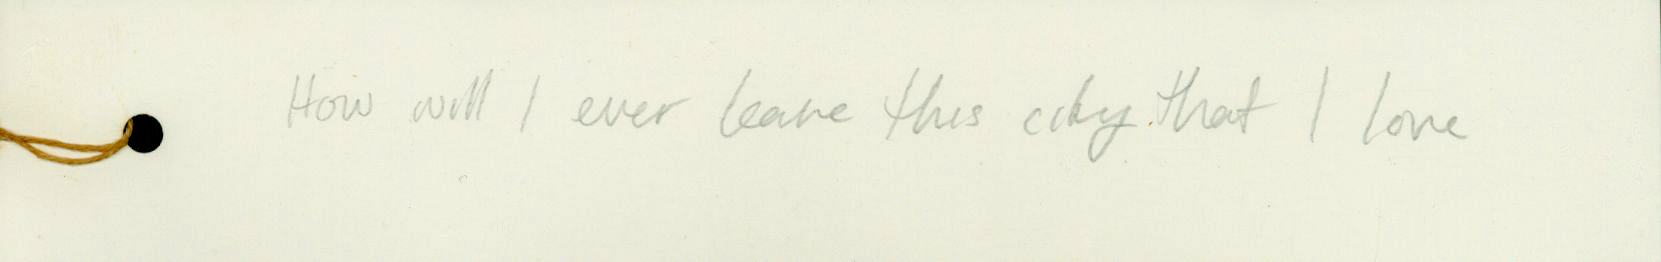 How will I ever leave this city that I love